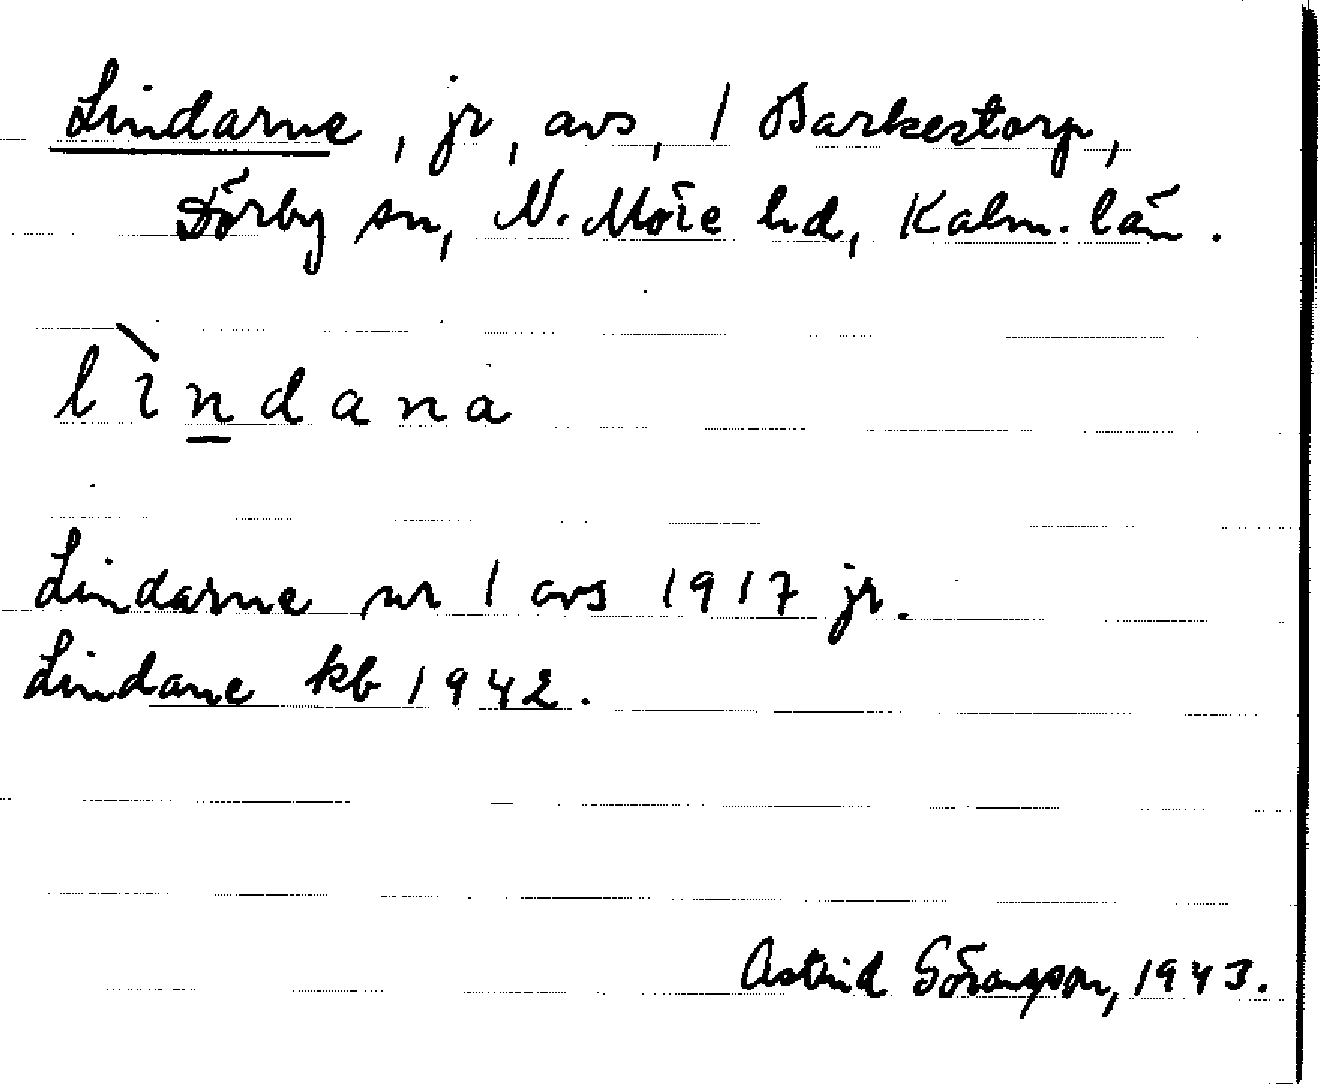 Lindarne, jr, avs, 1 Barkestorp,
Dörby sn, N. Möre hd, Kalm. län.
lìndana
Lindarne nr 1 avs 1917 jr.
Lindane kb 1942.
Astrid Göransson, 1943.